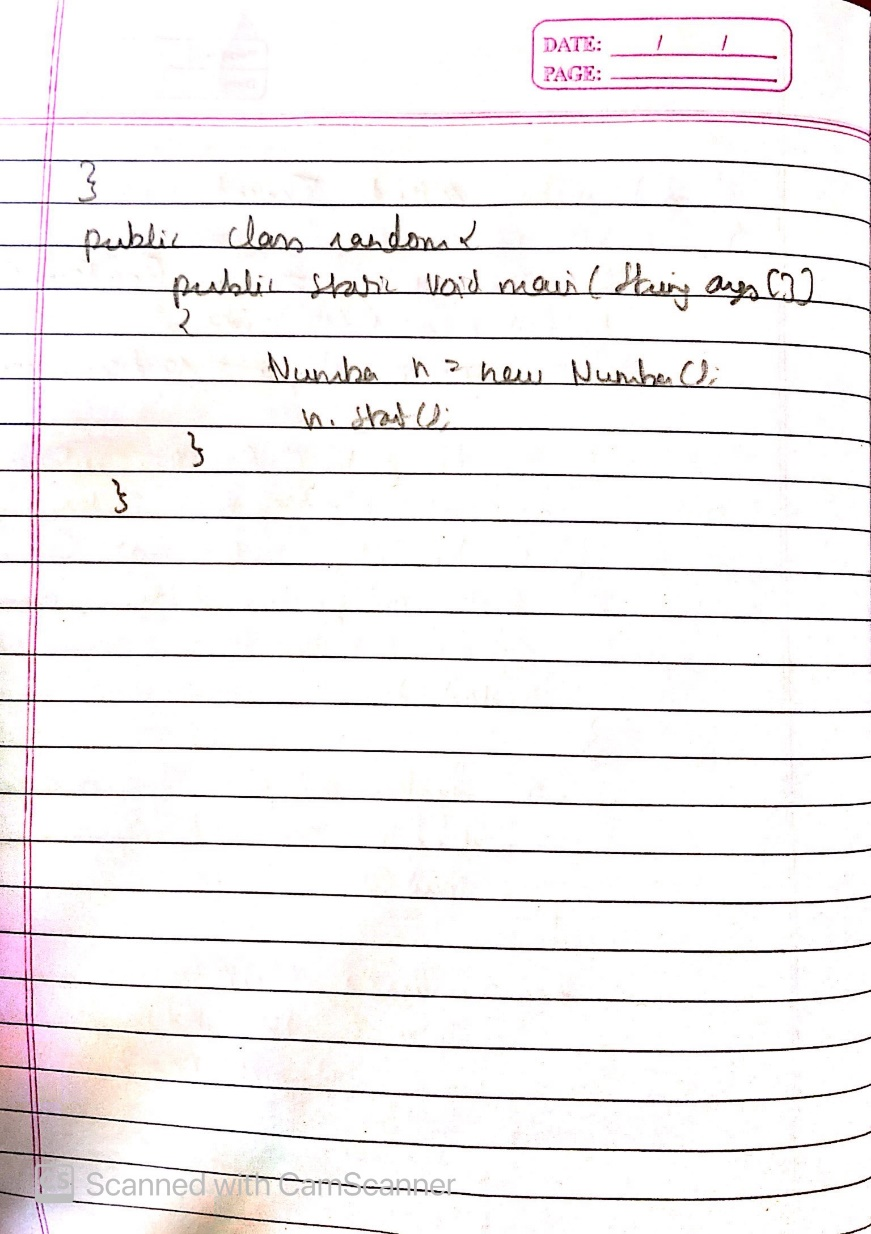 DATE: / /
PAGE:
}
public class random {
public static void main ( String args [])
{
Number n = new Number ();
n. start ();
}
}
CS Scanned with CamScanner